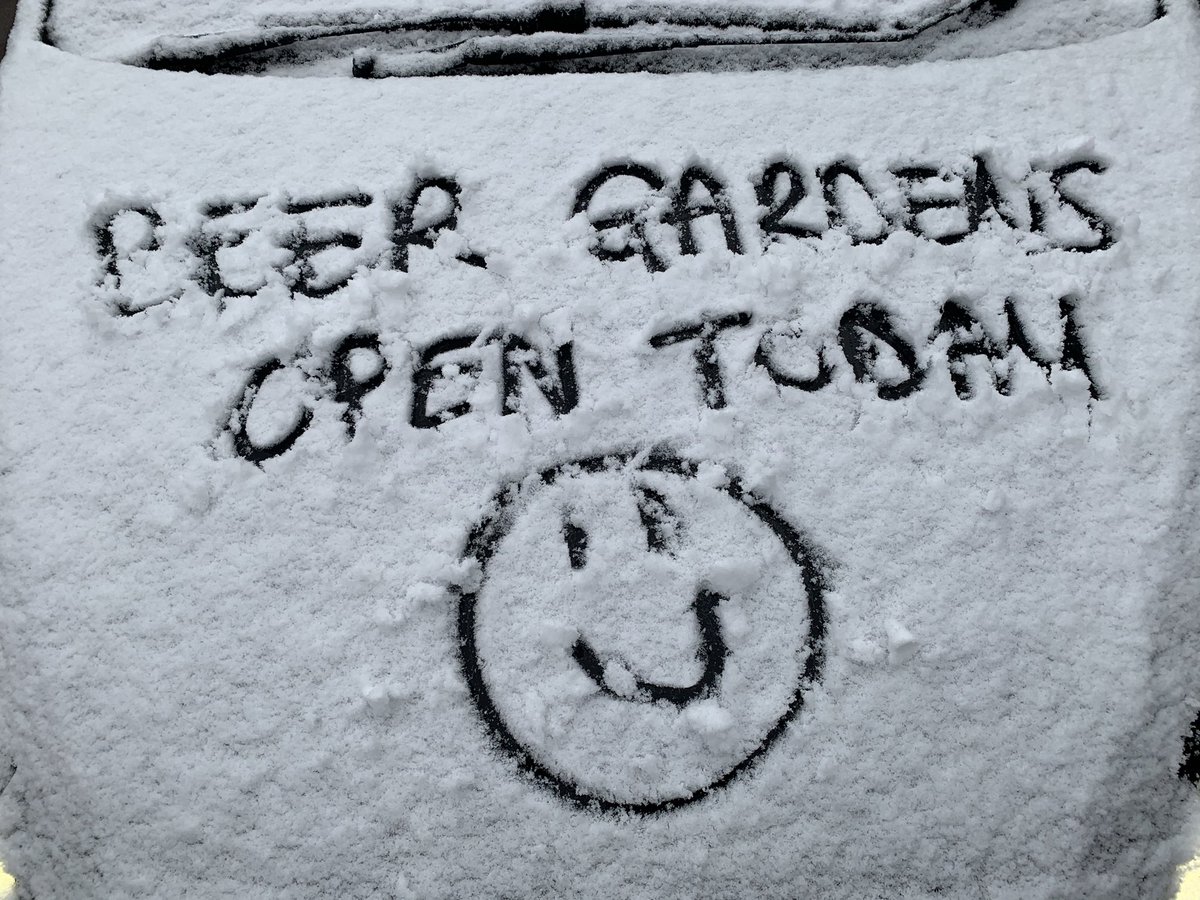 BEER GARDENS
OPEN TODAY